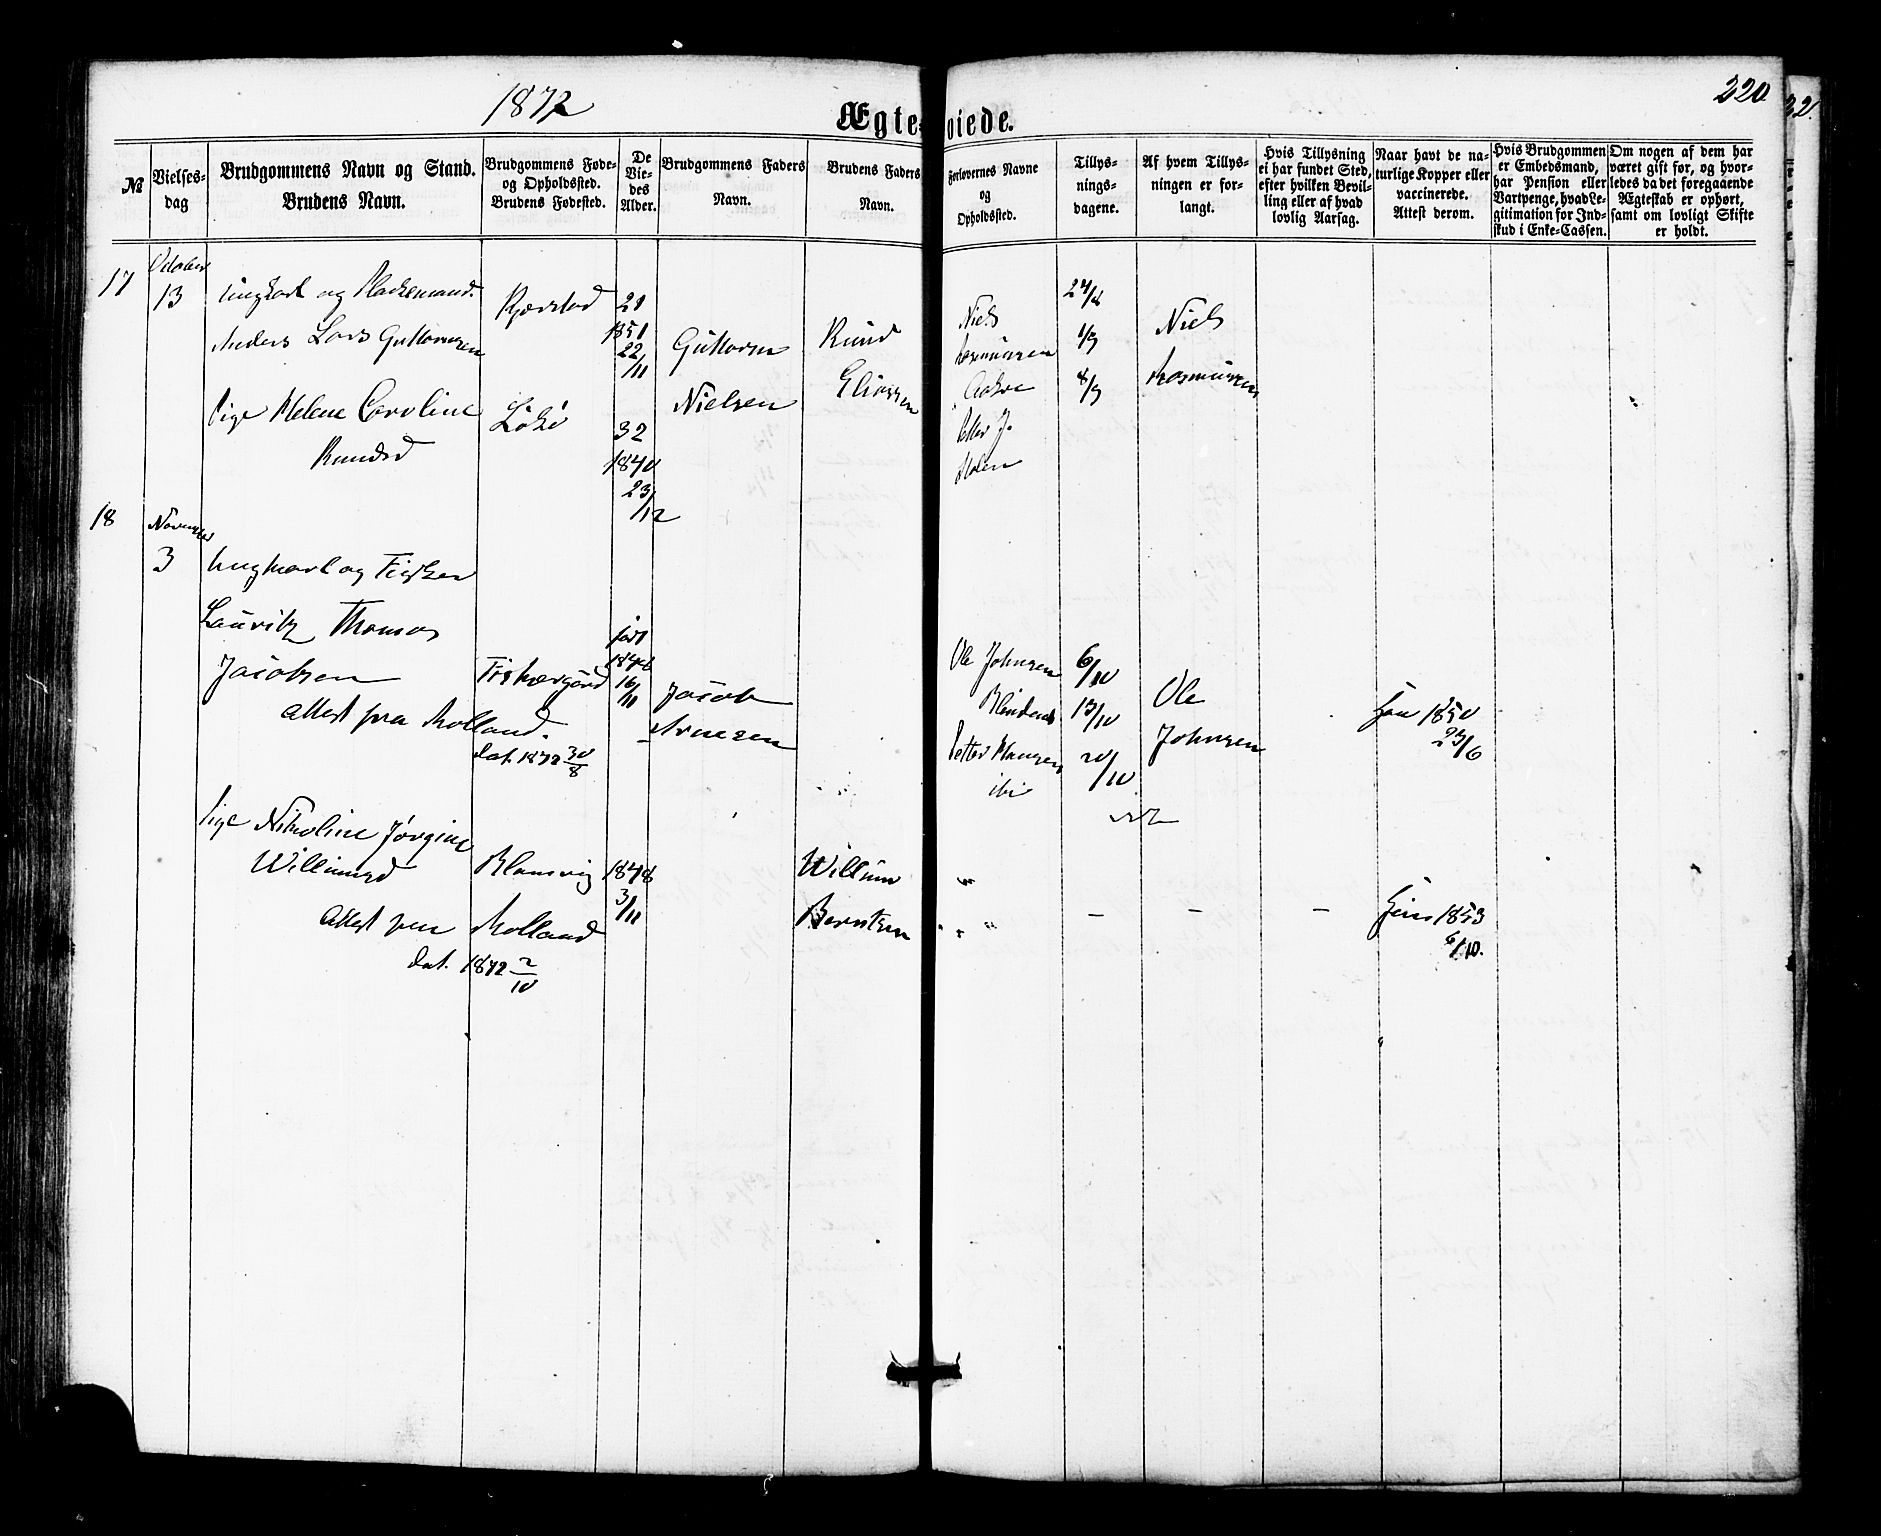 1872
220
Ægte-viede.
№
Vielses-dag
Brudgommens Navn og Stand.
Brudens Navn.
Brudgommens Føde-
og Opholdssted.
Brudens Fødested.
De
Vie-
des
Alder.
Brudgommens Faders
Navn.
Brudens Faders
Navn.
Forlovernes Navne
og
Opholdssted.
Tillys-
nings-
dagene.
Af hvem Tillys-
ningen er for-
langt.
Hvis Tillysning
ei har fundet Sted,
efter hvilken Bevil-
ling eller af hvad
lovlig Aarsag.
Naar havt de na-
turlige Kopper eller
vaccinerede.
Attest derom.
Hvis Brudgommen
er Embedsmand,
har Pension eller
Vartpenge, hvad Le-
gitimation for Ind-
skud i Enke-Cassen.
Om nogen af dem har
været gift før, og hvor-
ledes da det foregaaende
Ægteskab er ophørt,
samt om lovligt Skifte
er holdt.
17
October
13
Ungkarl og
Anders Lars Guttormsen
Pige Helene Caroline
Knudsd
21
1851
22/11
32
1840
23/12
Guttorm
Nielsen
Knud
Eliassen
Niels
Rasmussen
Petter J.
1/9
8/9
Niels
Rasmussen
18
3
Ungkarl og Fisker
Lauritz Thomas
Jacobsen
Attest fra Rolland.
dat. 1872 30/8
født
16/11
Jacob
Arnesen
Ole Johnsen
Blindens
Petter Hansen
ibi
6/10
13/10
20/10
Ole
Johnsen
1850
Pige Nikoline Jørgine
Willumsd
Attest fra Rolland
dat. 1872 2/10
1848
3/11
Willum
Berntsen
"
" "
– – –
1853
6/10.